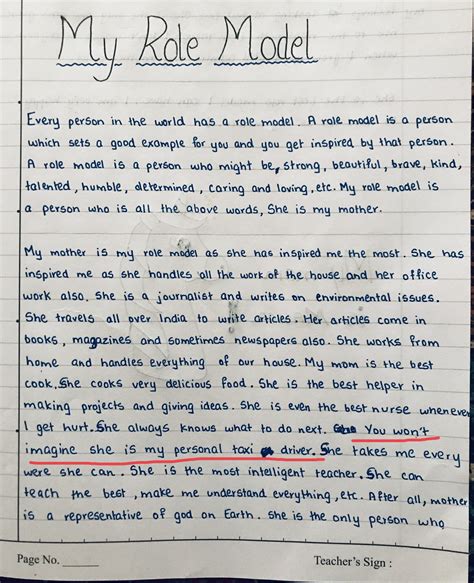 My Role Model
Every person in the world has a role model. A role model is a person
which sets a good example for you and you get inspired by that person.
A role model is a person who might be, strong, beautiful, brave, kind,
talented, humble, determined, caring and loving, etc. My role model is
a person who is all the above words, She is my mother.
My mother is my role model as she has inspired me the most. She has
inspired me as she handles all the work of the house and her office
work also. She is a journalist and writes on environmental issues.
She travels all over India to write articles. Her articles come in
books, magazines and sometimes newspapers also. She works from
home and handles everything of our house. My mom is the best
cook. She cooks very delicious food. She is the best helper in
making projects and giving ideas. She is even the best nurse whenever
I get hurt. She always knows what to do next. You won't
imagine she is my personal taxi driver. She takes me every
were she can. She is the most intelligent teacher. She can
teach the best, make me understand everything, etc. After all, mother
is a representative of god on Earth. She is the only person who
Page No. ______ Teacher's Sign :